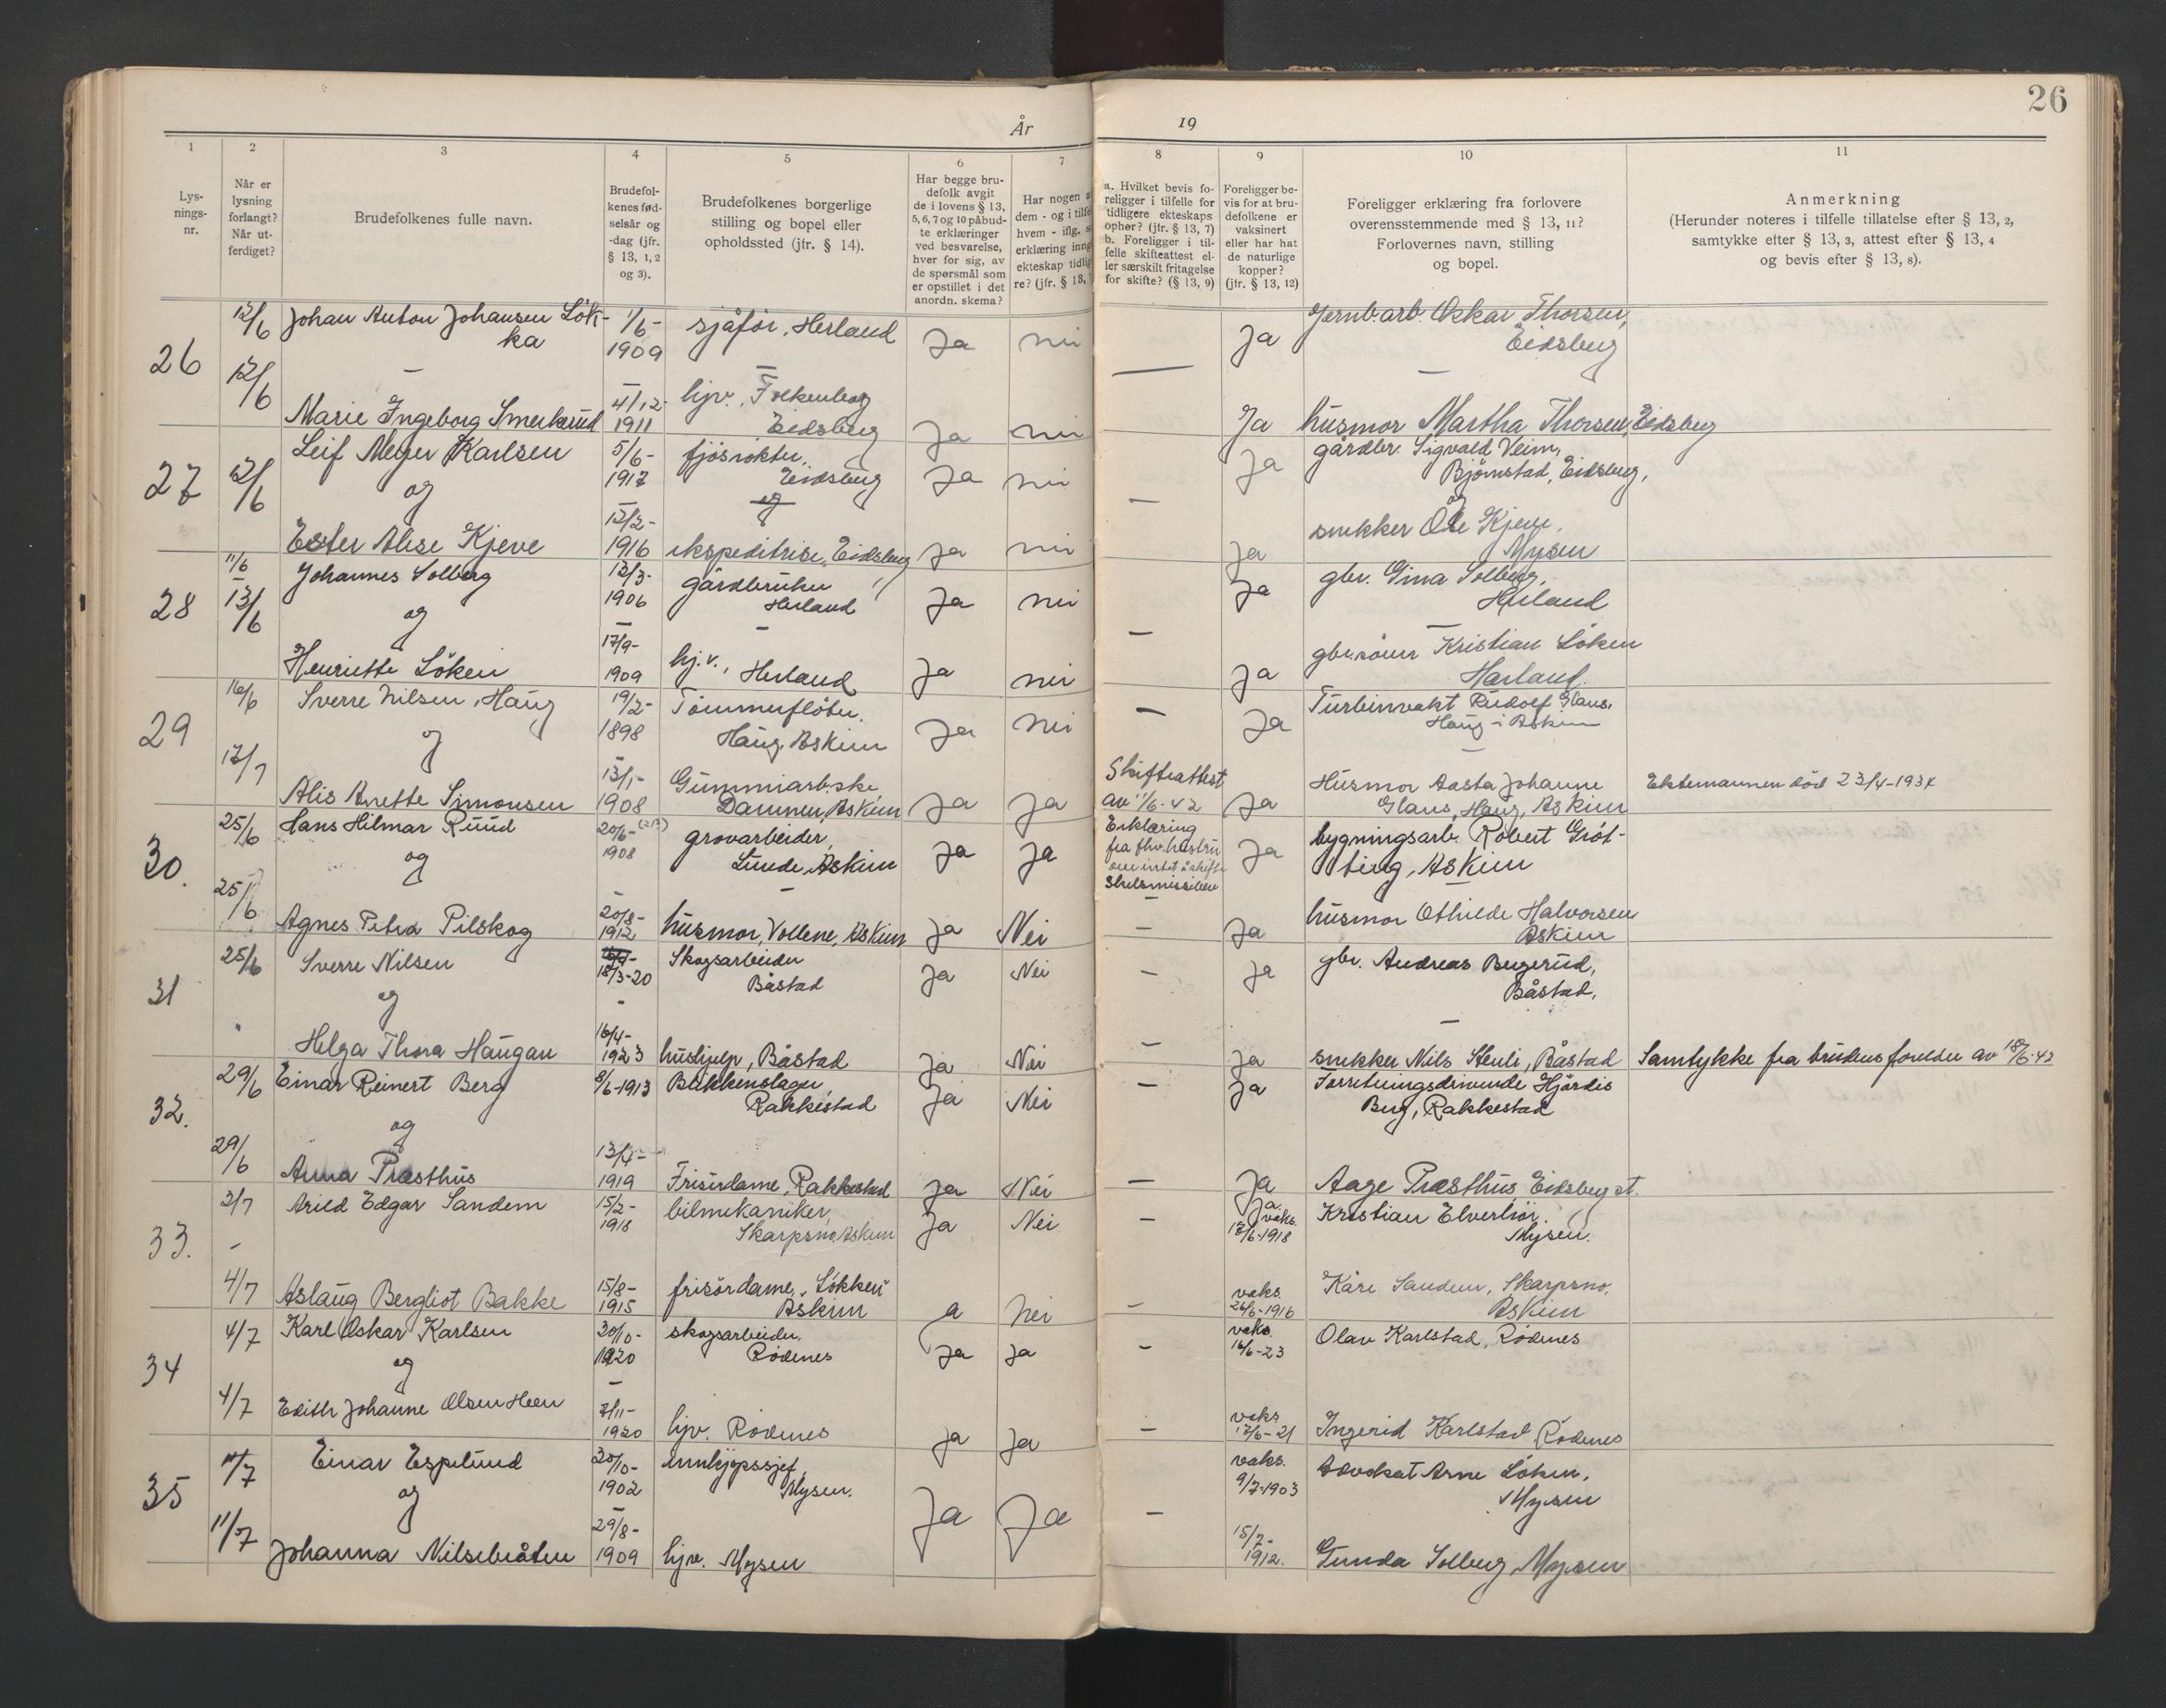 26
År 19
1
2
3
4
5
6
7
8
9
10
11
Lys-
nings-
nr.
Når er
lysning
forlangt?
Når ut-
ferdiget?
Brudefolkenes fulle navn.
Brudefol-
kenes fød-
selsår og
-dag (jfr.
§ 13, 1, 2
og 3).
Brudefolkenes borgerlige
stilling og bopel eller
opholdssted (jfr. § 14).
Har begge bru-
defolk avgit
de i lovens § 13,
5, 6, 7 og 10 påbud-
te erklæringer
ved besvarelse,
hver for sig, av
de spørsmål som
er opstillet i det
anordn. skema?
Har nogen a
dem - og i tilfe
hvem - iflg. s
erklæring inng
ekteskap tidlig
re? (jfr. § 13,
a. Hvilket bevis fo-
religger i tilfelle for
tidligere ekteskaps
ophør? (jfr. § 13, 7)
b. Foreligger i til-
felle skifteattest el-
ler særskilt fritagelse
for skifte? (§ 13, 9)
Foreligger be-
vis for at bru-
defolkene er
vaksinert
eller har hat
de naturlige
kopper?
(jfr. § 13, 12)
Foreligger erklæring fra forlovere
overensstemmende med § 13, 11?
Forlovernes navn, stilling
og bopel.
Anmerkning
(Herunder noteres i tilfelle tillatelse efter § 13, 2,
samtykke efter § 13, 3, attest efter § 13, 4
og bevis efter § 13, 8).
26 12/6 Johan Anton Johansen Lök- 1/6- sjåfør, Herland Ja nei — Ja Jernb.arb. Oskar Thorsen,
ka 1909 Eidsberg
12/6 — 4/12- hjv., Folkenborg
Marie Ingeborg Smerkerud 1911 Eidsberg Ja nei Ja husmor Martha Thorsen, Eidsberg
27 12/6 Leif Meyer Karlsen 5/6- fjösrökter, Ja nei — Ja gårdbr. Sigvald Veim,
og 1917 Eidsberg Björnstad, Eidsberg,
og og
12/2- snekker Ole Kjeve,
Ester Alise Kjeve 1916 ekspeditrise, Eidsberg Ja nei Ja Mysen
28 11/6 Johannes Solberg 12/3- gårdbruker Ja nei Ja gbr. Gina Solberg,
13/6 og 1906 Herland Herland
17/9- — gbr.sönn Kristian Löken
Henriette Löken 1909 hj.v., Herland Ja nei Ja Herland.
29 16/6 Sverre Nilsen, Haug 19/2- Tömmerflöter, Ja nei — Ja Turbinvakt Rudolf Glans,
og 1898 Haug, Askim Haug i Askim
17/7 13/1- Gummiarb.ske Skifteattest Husmor Aasta Johanne Ektemannen död 23/4-1937
Alis Anette Simonsen 1908 Dammen, Askim Ja Ja av 11/6-42 Ja Glans, Haug, Askim
30. 25/6 Hans Hilmar Ruud 20/6- grovarbeider, Ja Ja Erklæring Ja bygningsarb. Robert Gröt-
og 1908 Lunde, Askim fra fhv. hustru berg, Askim
om intet å skifte
25/6 Skilsmissebev.
20/8- — husmor Othilde Halvorsen
Agnes Petra Pilskog 1912 husmor, Vollene, Askim Ja Nei Ja Askim
31 25/6 Sverre Nilsen 18/3-20 Skogsarbeider Ja Nei — Ja gbr. Andreas Bergerud,
og Båstad Båstad,
" 16/4- —
Helga Thora Haugan 1923 hushjelp, Båstad Ja Nei Ja snekker Nils Stenli, Båstad Samtykke fra brudens forelder av 18/6-42
32. 29/6 Einar Reinert Berg 8/6-1913 Bakkenslager, Ja Nei — Ja Forretningsdrivende Hjördis
og Rakkestad Berg, Rakkestad
29/6 13/4-
Anna Præsthus 1919 Frisördame, Rakkestad Ja Nei — Ja Aage Præsthus, Eidsberg st.
33. 3/7 Arild Edgar Sandem 15/2- bilmekaniker, Ja Nei — Ja vaks. Kristian Elverhöi,
1918 Skarpsno, Askim 17/6-1918 Mysen.
4/7 15/8- frisördame, Løkken vaks. Kåre Sandem, Skarpsno,
Aslaug Bergliot Bakke 1915 Askim a Nei — 26/6-1916 Askim
34 4/7 Karl Oskar Karlsen 30/10- skogsarbeider, Ja Ja — vaks. Olav Karlstad, Rödenes
og 1920 Rödenes 16/6-23
4/7 Edith Johanne Olsen Heen 7/11- vaks
1920 hjv. Rödenes Ja Ja — 17/6-21 Ingerid Karlstad Rödenes
35 11/7 Einar Espelund 20/10- innkjöpssjef, vaks. Advokat Arne Löken,
og 1902 Mysen. Ja Ja — 9/7-1903 Mysen
11/7 29/8- 15/7-
Johanna Nilsebråten 1909 hjv. Mysen 1912. Gunda Solberg, Mysen